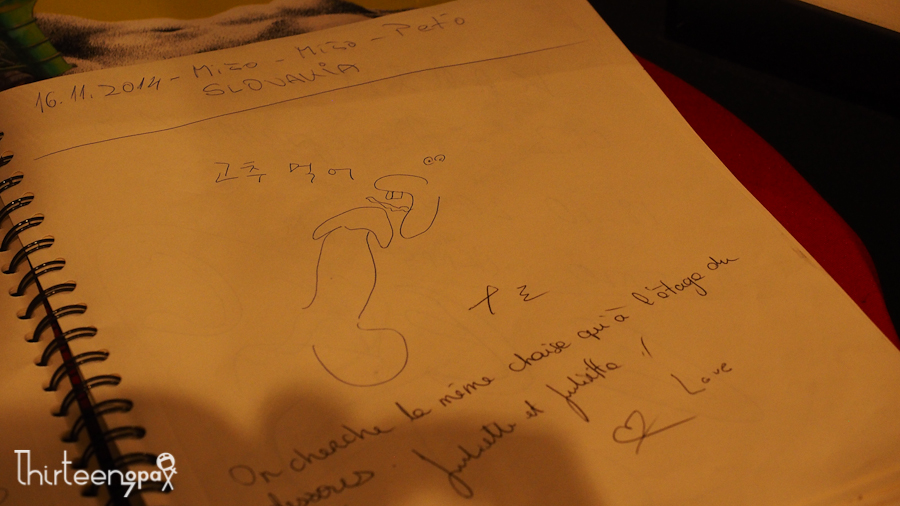 16.11.2014 - Mišo - Mišo - Peťo
SLOVAKIA
고추 멀어
On cherche la même chaise qu'à l'étage du
dessous. Juliette et Juliette !
Love
Thirteengpax